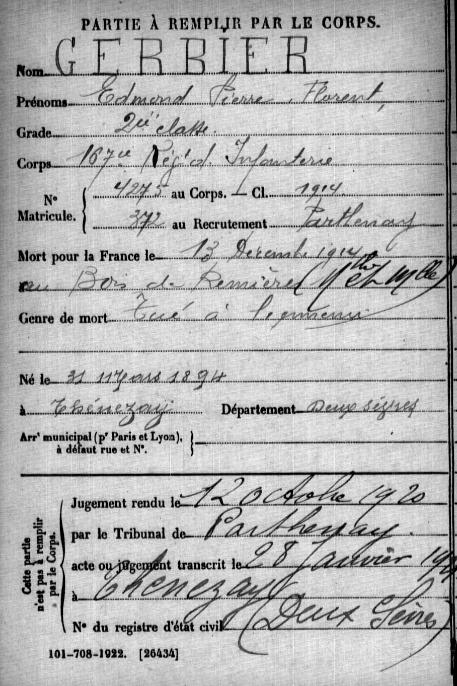 PARTIE À REMPLIR PAR LE CORPS.
Nom GERBIER
Prénoms Edmond Pierre Florent,
Grade 2me classe.
Corps 167me Régt d'Infanterie
N° Matricule. { 4275 au Corps. — Cl. 1914
372 au Recrutement Parthenay
Mort pour la France le 13 Décembre 1914
au Bois de Remières (Mthe et Mlle)
Genre de mort Tué à l'ennemi
Né le 31 Mars 1894
à Thénezay Département Deux Sèvres
Arr^t municipal (p^r Paris et Lyon),
à défaut rue et N°.
Cette partie n'est pas à remplir par le Corps.
Jugement rendu le 12 Octobre 1920
par le Tribunal de Parthenay.
acte ou jugement transcrit le 28 Janvier
à Thenezay
N° du registre d'état civil (Deux Sèvres)
101-708-1922. [26434]